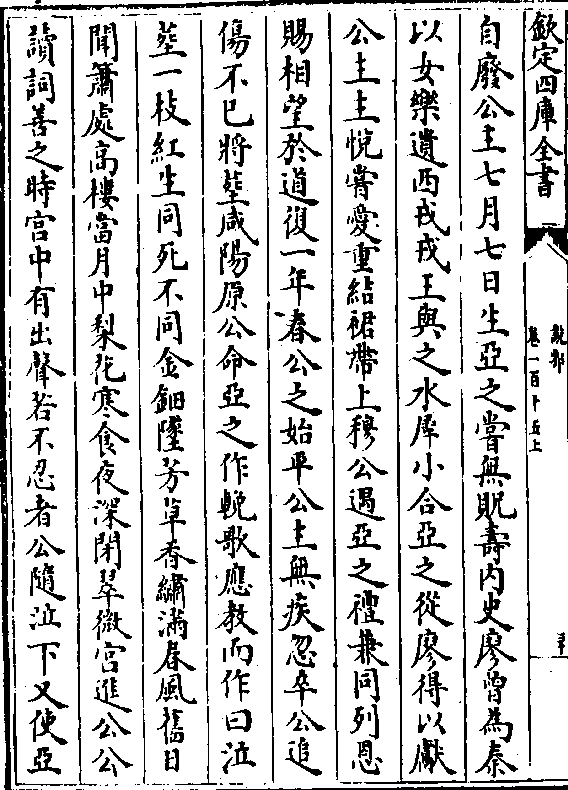 欽定四庫全書
說郛
卷一百十五上
自廢公主七月七日生亞之嘗無貺壽内史廖曾為秦
以女樂遺西戎戎王與之水犀小合亞之從廖得以獻
公主主悦嘗愛重結裙帶上穆公遇亞之禮兼同列恩
賜相望於道復一年春公之始平公主無疾忽卒公追
傷不已將葬咸陽原公命亞之作輓歌應教而作曰泣
葬一枝紅生同死不同金鈿墜芳草香繡滿春風舊日
聞簫處高樓當月中梨花寒食夜深閉翠微宫進公公
讀詞善之時宫中有出聲若不忍者公隨泣下又使亞